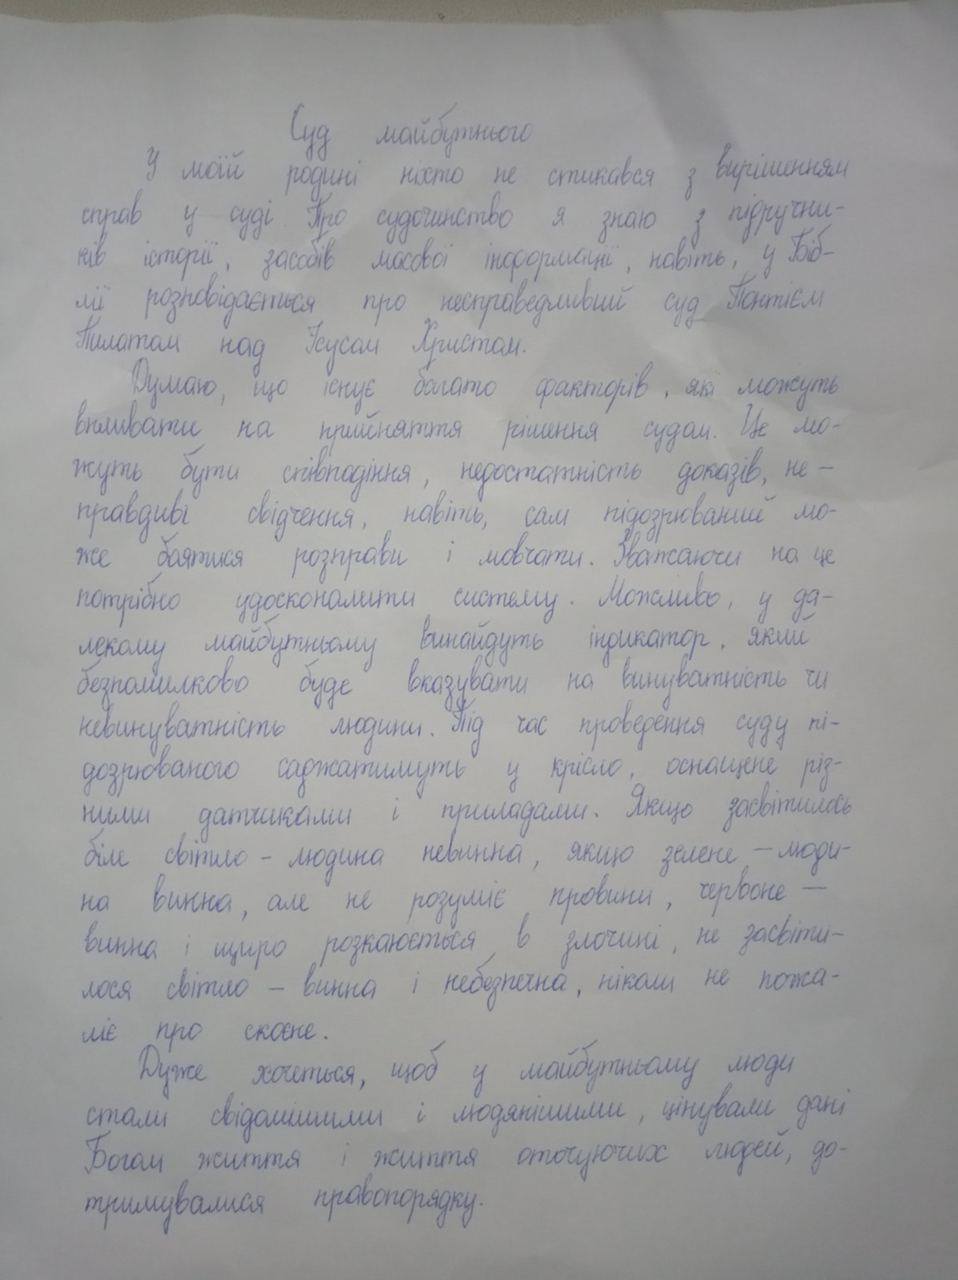 Суд майбутнього
У моїй родині ніхто не стикався з вирішенням
справ у суді. Про судочинство я знаю з підручни-
ків історії, засобів масової інформації, навіть, у Біб-
лії розповідається про несправедливий суд Понтієм
Пилатом над Ісусом Христом.
Думаю, що існує багато факторів, які можуть
впливати на прийняття рішення судом. Це мо-
жуть бути співпадіння, недостатність доказів, не-
правдиві свідчення, навіть, сам підозрюваний мо-
же боятися розправи і мовчати. Зважаючи на це
потрібно удосконалити систему. Можливо, у да-
лекому майбутньому винайдуть індикатор, який
безпомилково буде вказувати на винуватність чи
невинуватність людини. Під час проведення суду пі-
дозрюваного саджатимуть у крісло, оснащене різ-
ними датчиками і приладами. Якщо засвітилось
біле світло - людина невинна, якщо зелене - люди-
на винна, але не розуміє провини, червоне -
винна і щиро розкаюється в злочині, не засвіти-
лося світло - винна і небезпечна, ніколи не пожа-
ліє про скоєне.
Дуже хочеться, щоб у майбутньому люди
стали свідомішими і людянішими, цінували дані
Богом життя і життя оточуючих людей, до-
тримувалися правопорядку.